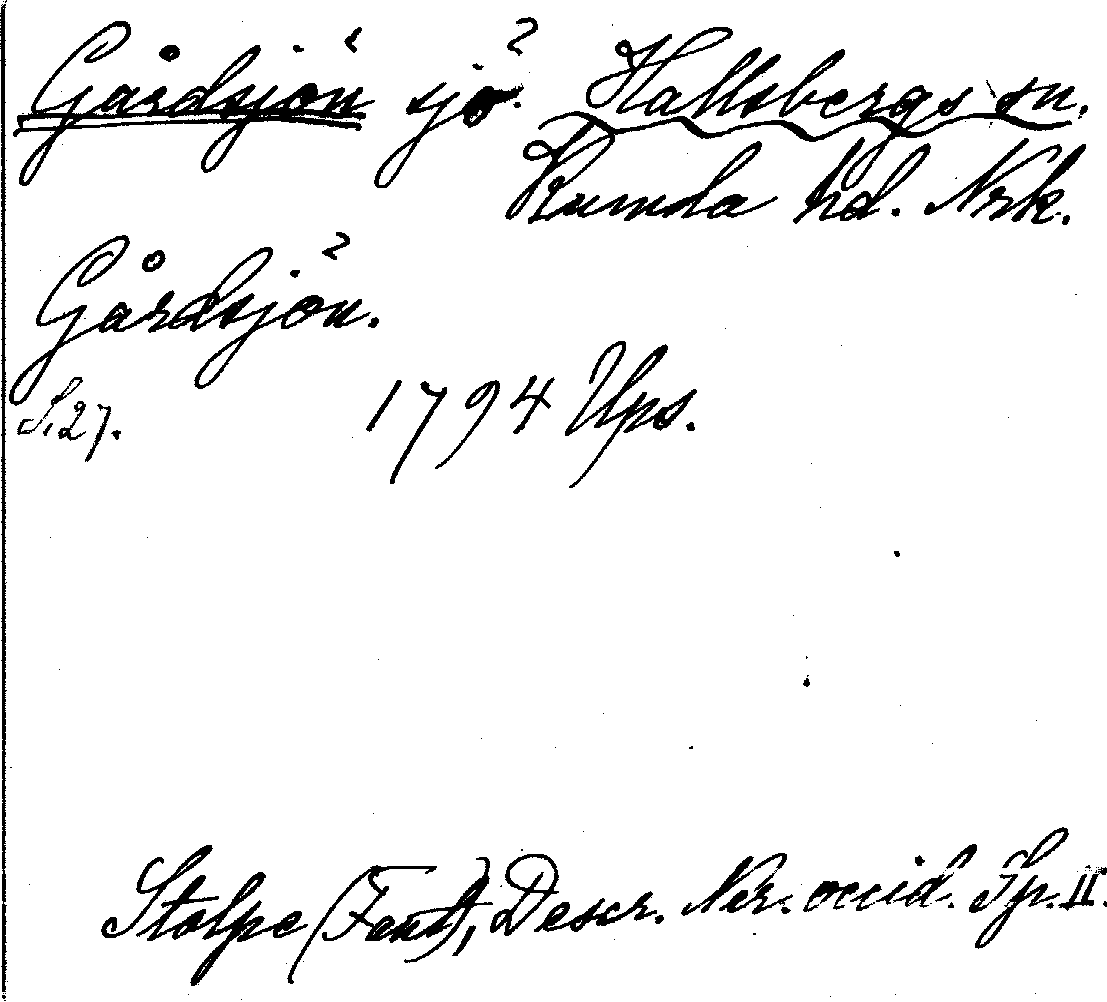 Gårdsjön sjö. Hallsbergs sn.
Kumla hd. Nrk.
Gårdsjön.
S.27. 1794 Ups.
Stolpe (Fant), Descr. Ner. occid. Sp. II.